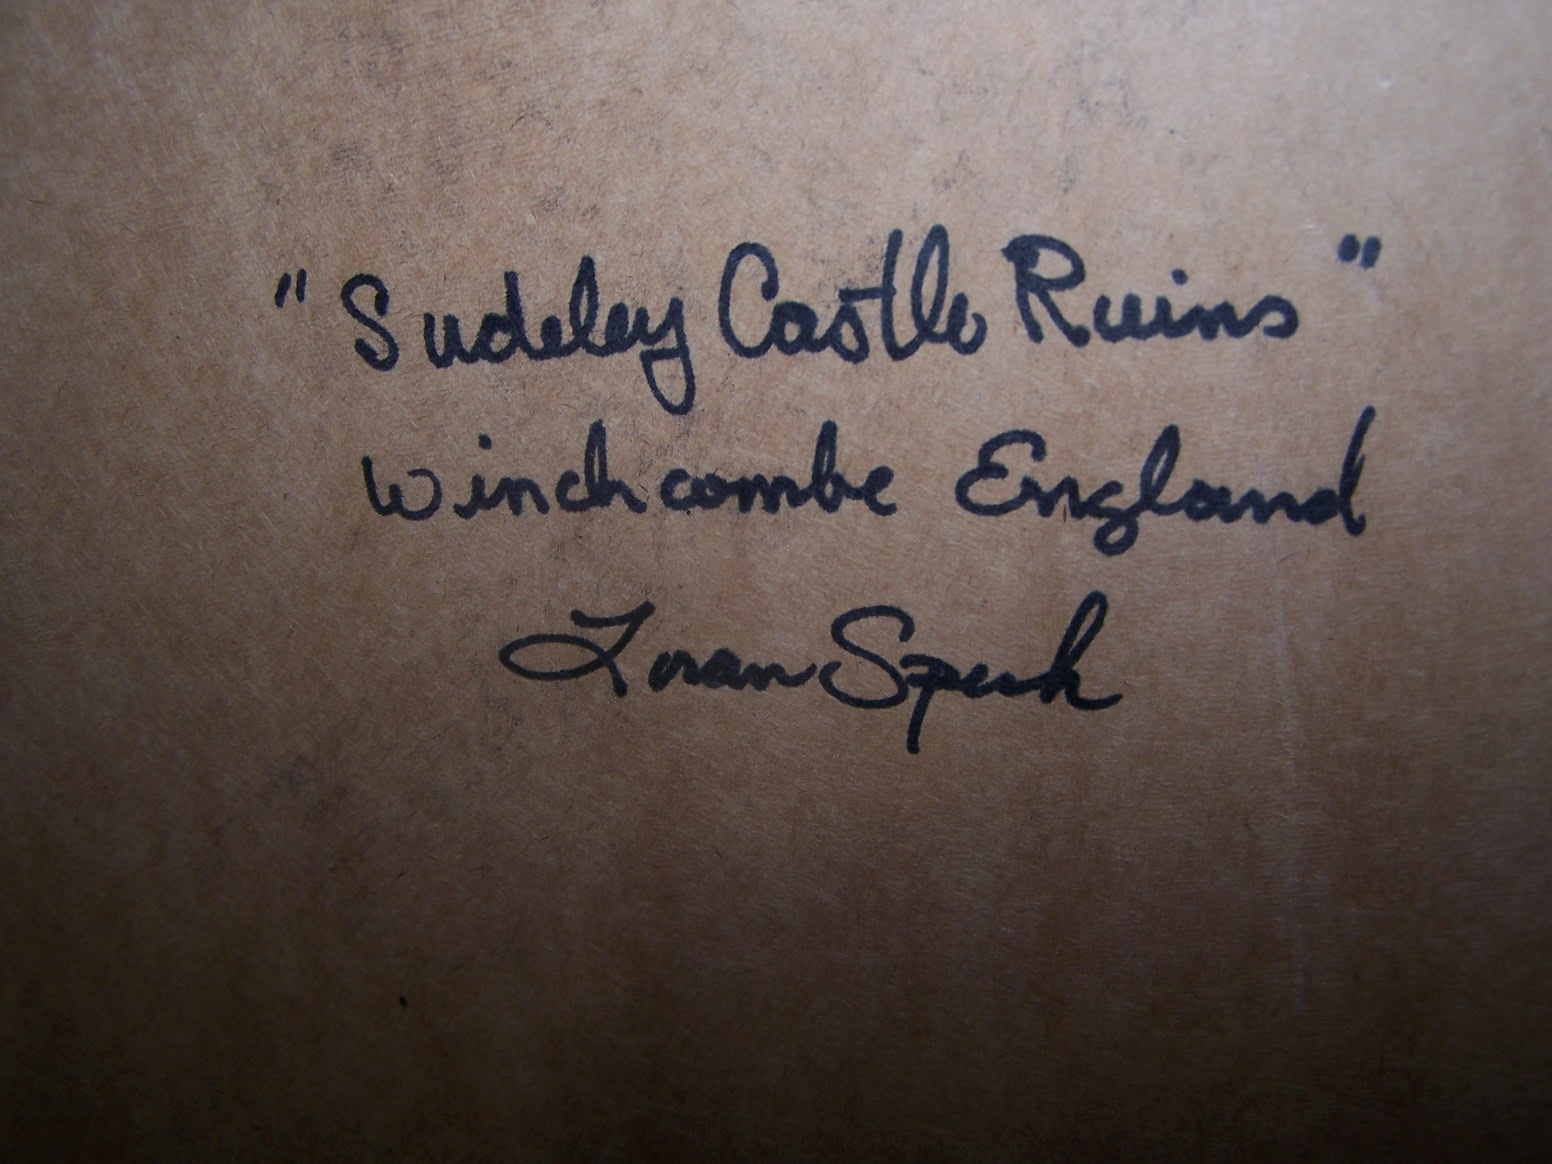 "Sudeley Castle Ruins"
Winchcombe England
Loran Speck